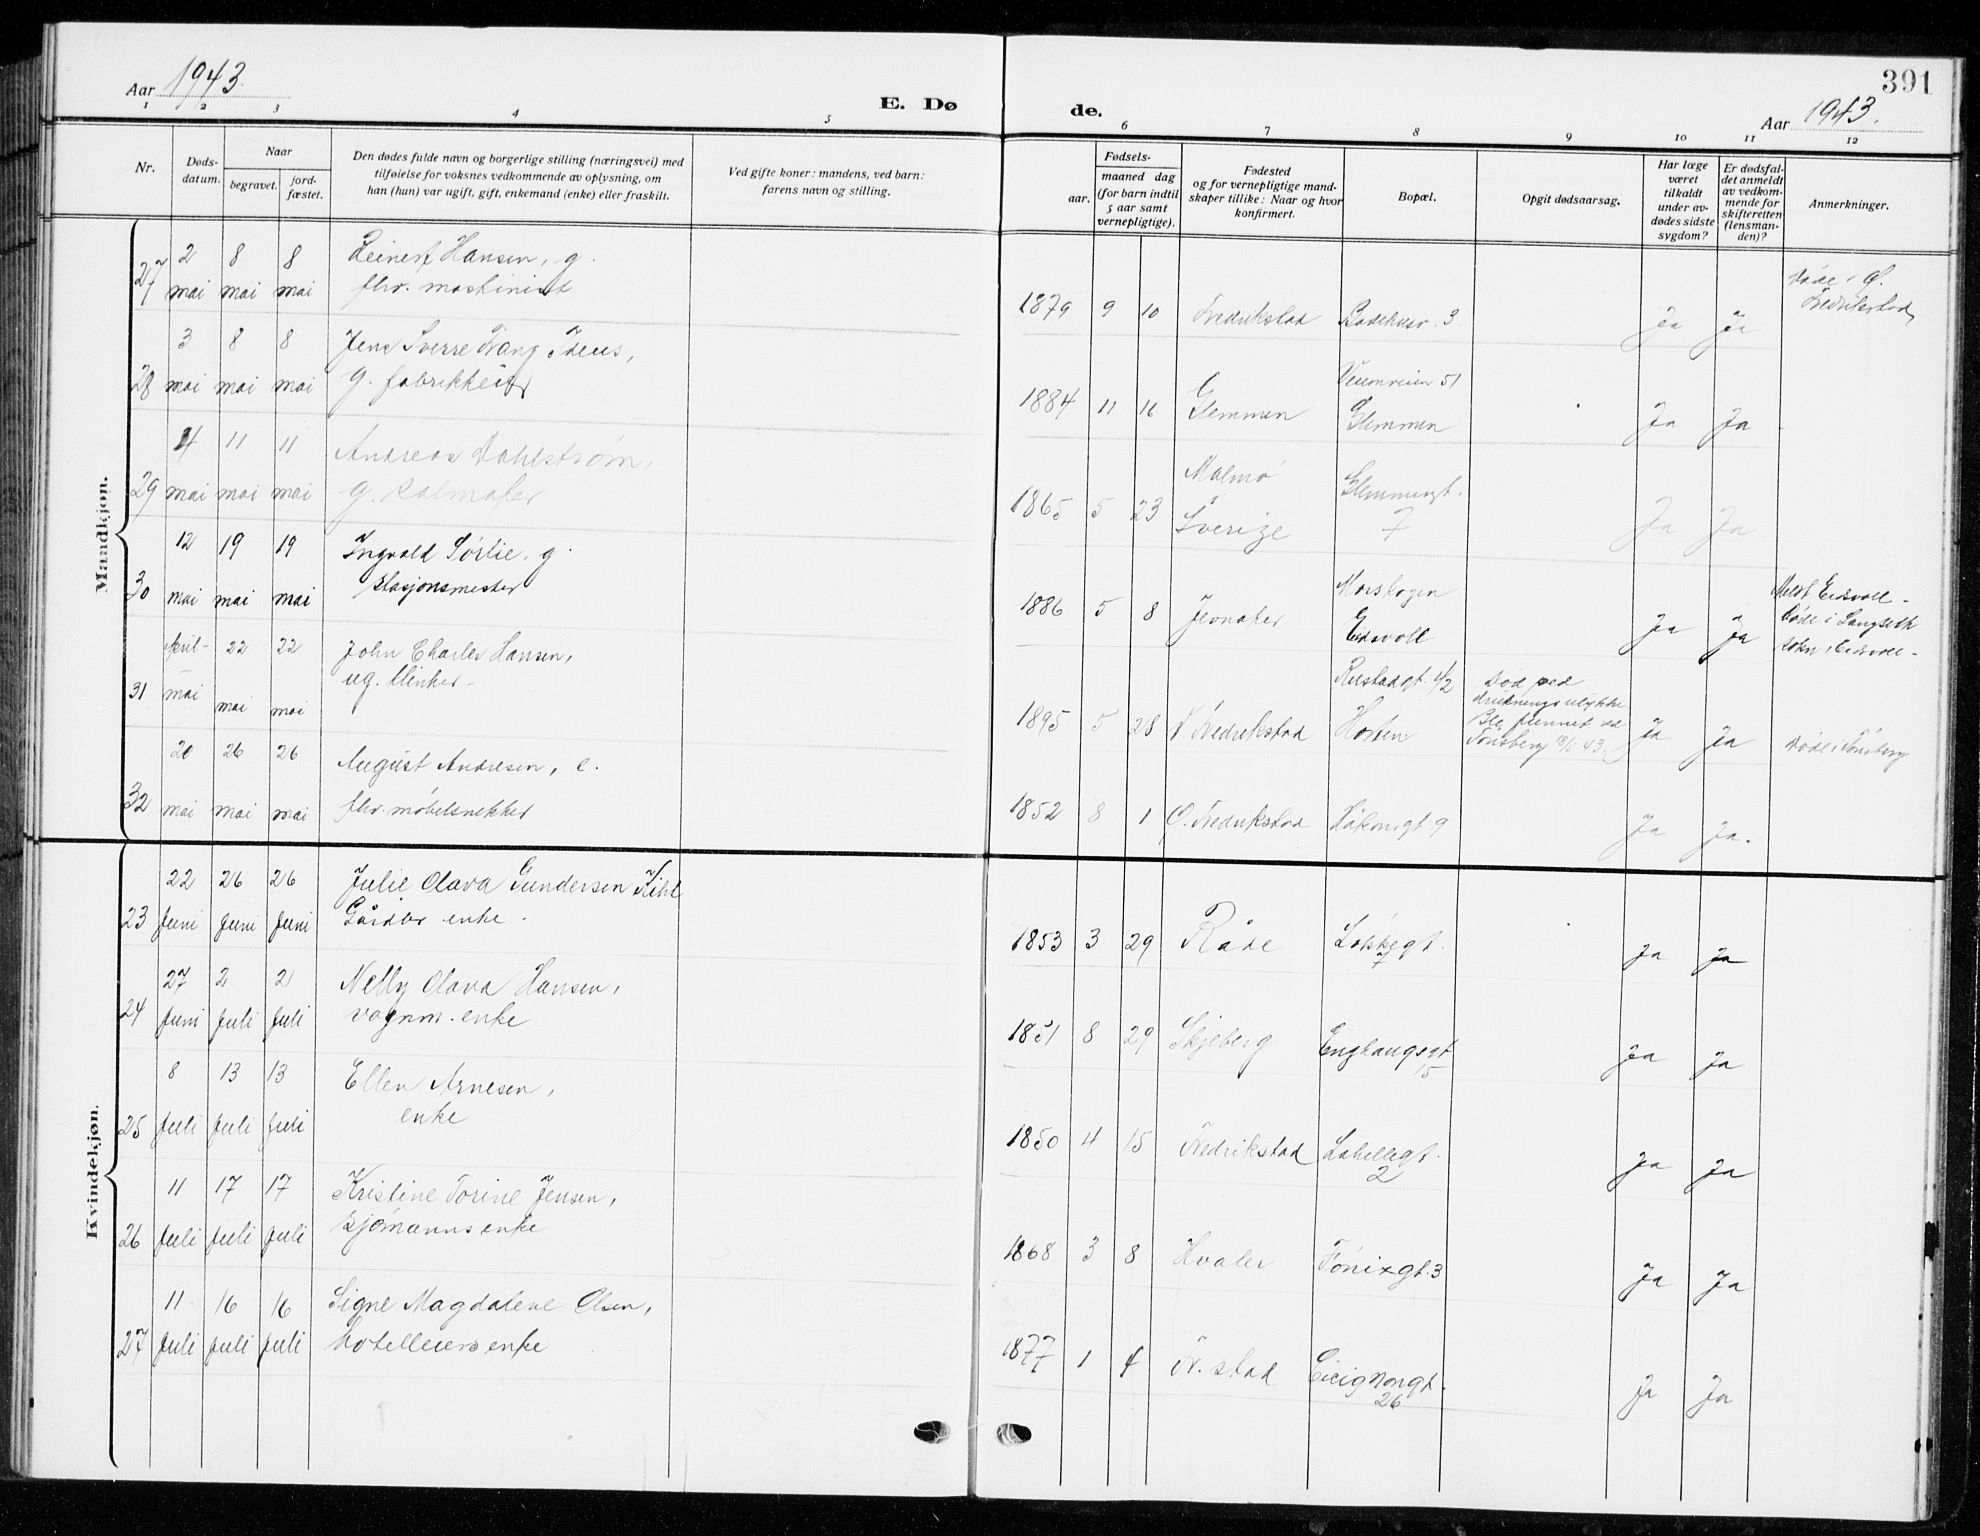 391
Aar 1943.
E. Dø de.
Aar 1943.
1 2 3 4 5 6 7 8 9 10 11 12
Nr.
Døds-
datum.
Naar
begravet.
jord-
fæstet.
Den dødes fulde navn og borgerlige stilling (næringsvei) med
tilføielse for voksnes vedkommende av oplysning, om
han (hun) var ugift, gift, enkemand (enke) eller fraskilt.
Ved gifte koner: mandens, ved barn:
farens navn og stilling.
Fødsels-
aar.
maaned dag
(for barn indtil
5 aar samt
vernepligtige).
Fødested
og for vernepligtige mand-
skaper tillike: Naar og hvor
konfirmert.
Bopæl.
Opgit dødsaarsag.
Har læge
været
tilkaldt
under av-
dødes sidste
sygdom?
Er dødsfal-
det anmeldt
av vedkom-
mende for
skifteretten
(lensman-
den)?
Anmerkninger.
Mandkjøn.
27 2 mai 8 mai 8 mai
Reinert Hansen, g.
fhv. maskinist
1879 9 10 Fredrikstad 3 Ja Ja
Døde i Ø.
Fredrikstad
28 3 mai 8 mai 8 mai
Jens Sverre
g. fabrikkeier
1884 11 16 Glemmen
Veumveien 51
Glemmen
Ja Ja
29 4 mai 11 mai 11 mai
Andreas Dahlstrøm,
g. salmaker
1865 5 23
Malmø
Sverige
Glemmengt.
7
Ja Ja
30 12 mai 19 mai 19 mai
Ingvald Sørlie, g.
stasjonsmester
1886 5 8 Jevnaker
Morskogen
Eidsvoll
Ja Ja
Meldt Eidsvoll -
Døde i Langseth
sokn i Eidsvoll -
31 April- mai 22 mai 22 mai
John Charles Hansen,
ug. klinker -
1895 5 28 V. Fredrikstad
Rustadgt. 1/2
Horten
Død ved
drukningsulykke
Ble funnet ved
Tønsberg 18/5 43.
Ja Ja
Døde i Tønsberg
32 20 mai 26 mai 26 mai
August Andresen, e.
fhv. møbelsnekker
1852 8 1 Ø. Fredrikstad Håkonsgt. 9 Ja Ja.
Kvindekjøn.
23 22 Juni 26 Juni 26 Juni
Julie Olava Gundersen Kihl
Gårdbr. enke -
1853 3 29 Råde
7
Ja Ja
24 27 Juni 2 Juli 2 Juli
Nelly Olava Hansen,
vognm. enke
1851 8 29 Skjeberg Enghaugsgt.
15
Ja Ja
25 8 Juli 13 Juli 13 Juli
Ellen Arnesen,
enke
1850 4 15 Fredrikstad Lahellegt.
2
Ja Ja
26 11 Juli 17 Juli 17 Juli
Kristine Torine Jensen,
sjømanns enke
1868 3 8 Hvaler Fønixgt. 3 Ja Ja
27 11 Juli 16 Juli 16 Juli
Signe Magdalene Olsen,
hotelleiers enke
1877 1 4 Fr.stad Cicignongt.
26
Ja Ja